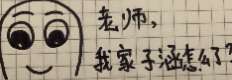 老师，
我家子涵怎么了？